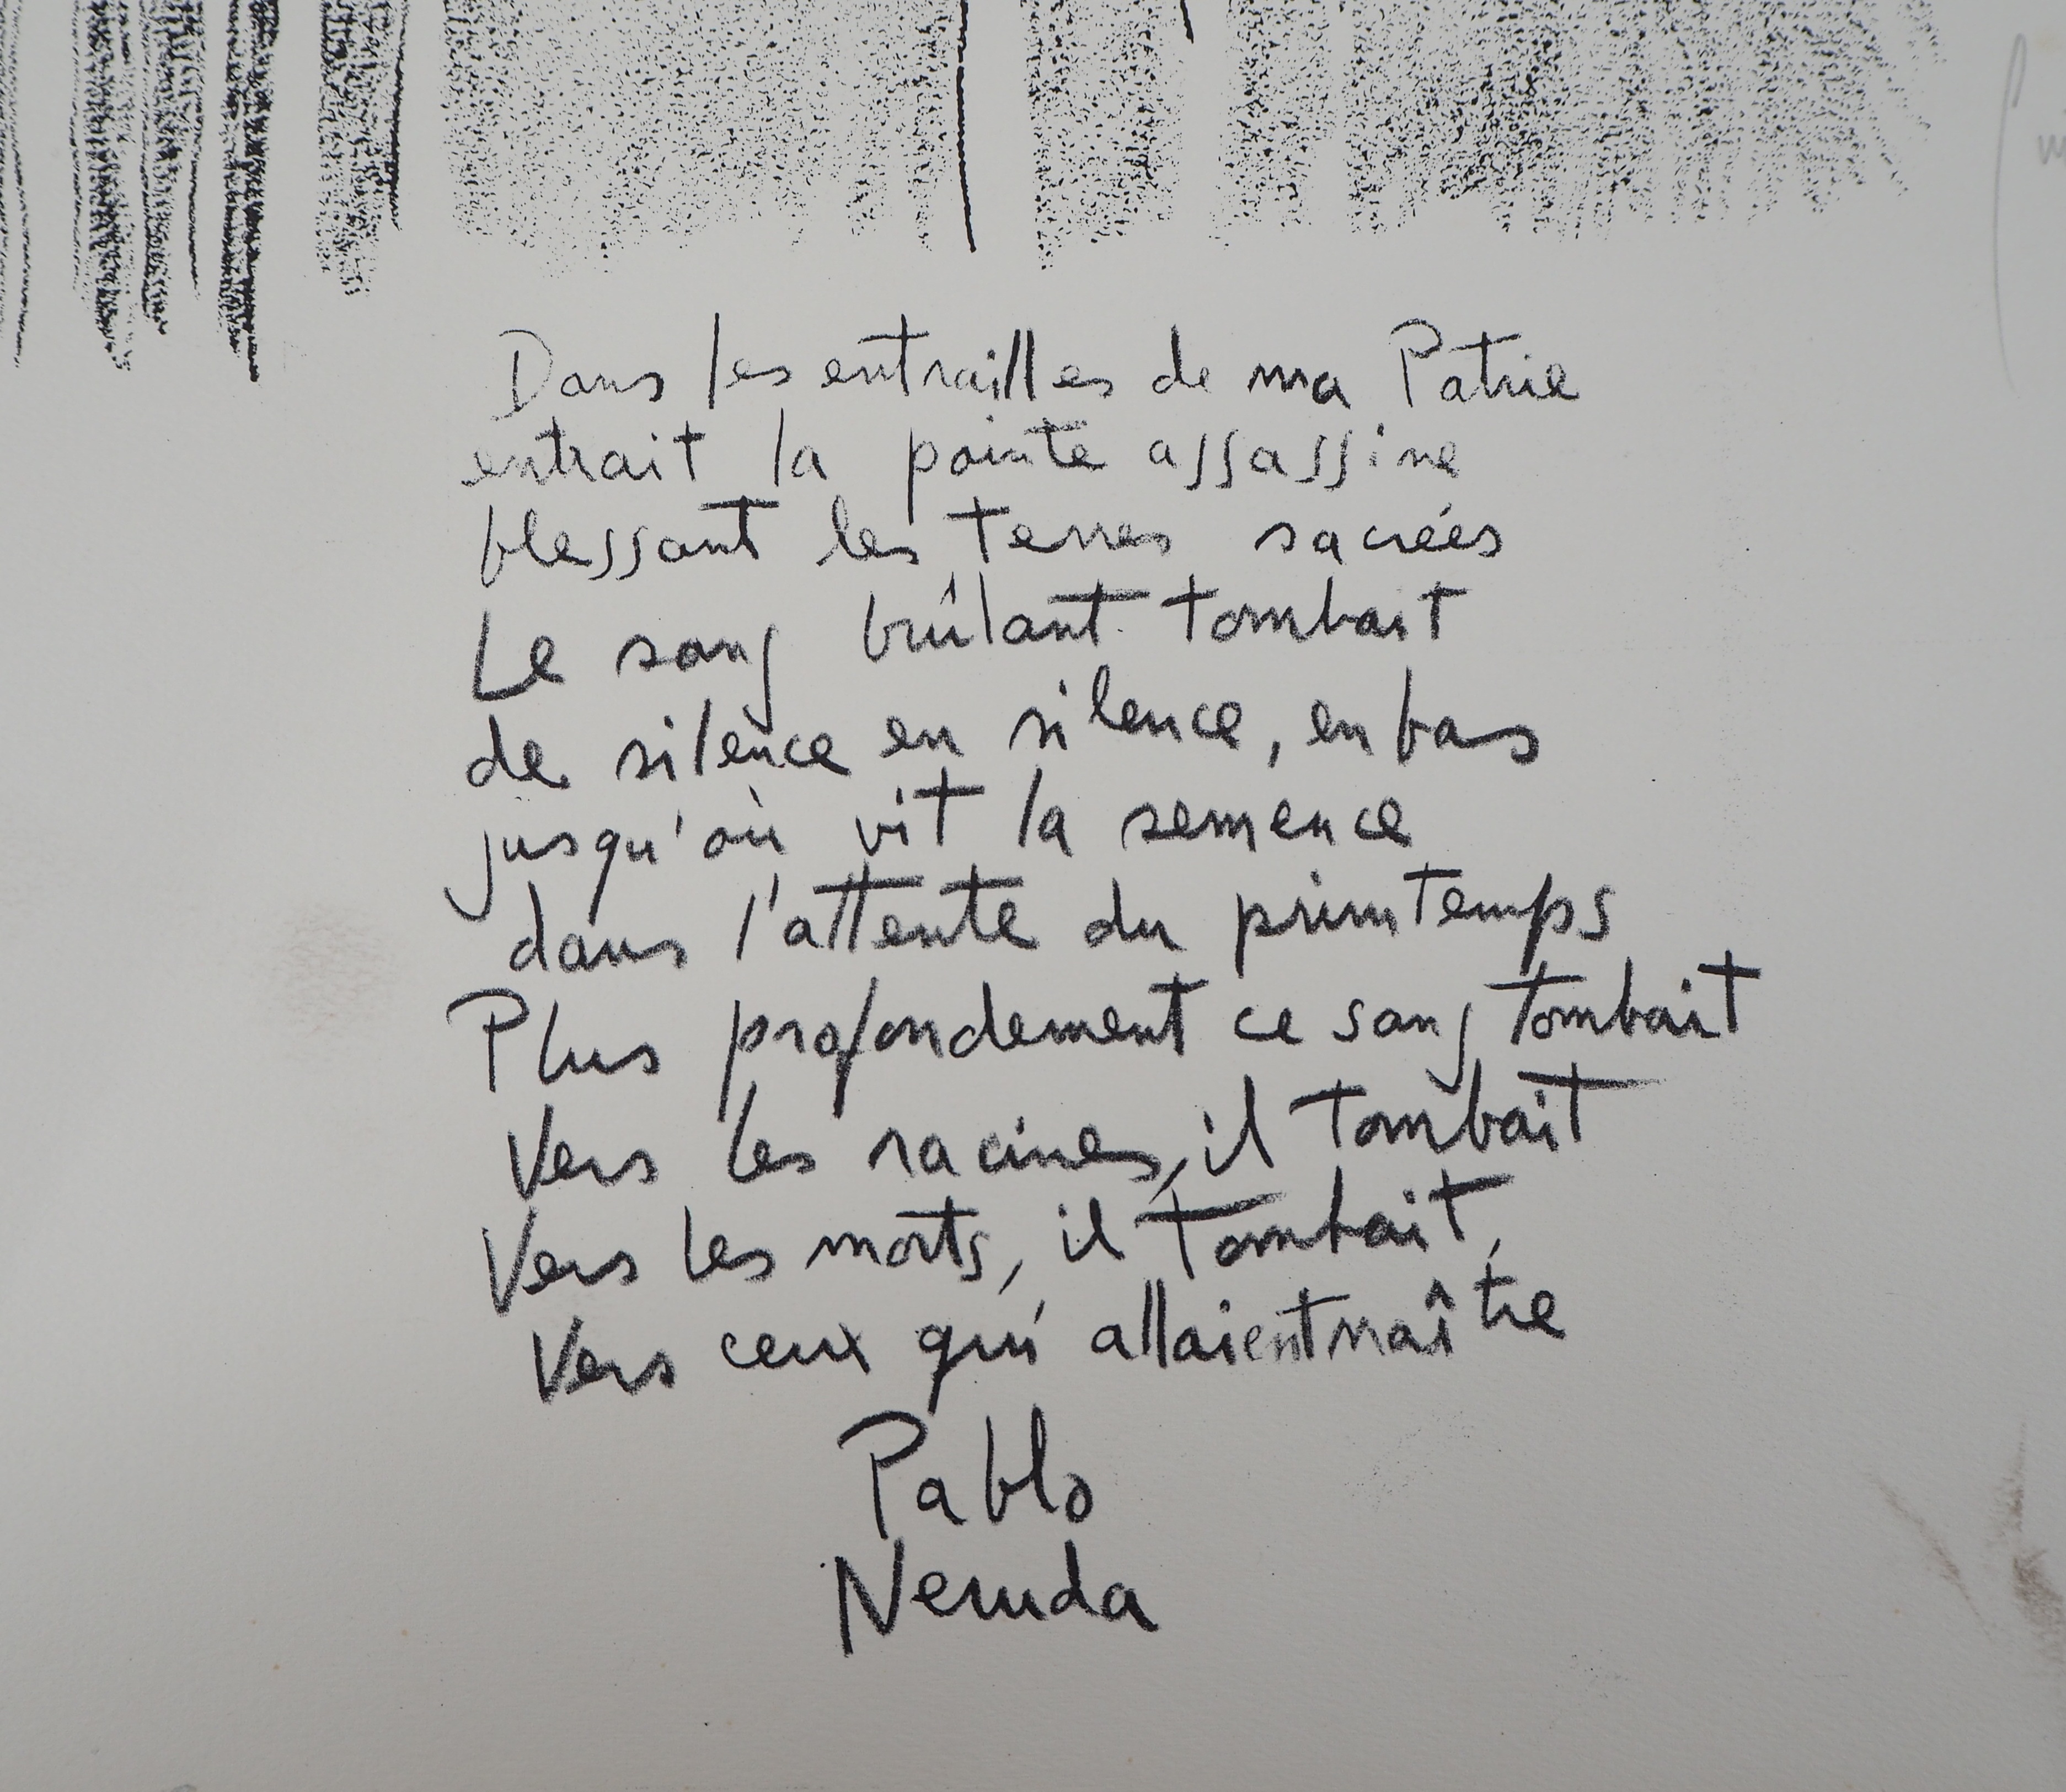 Dans les entrailles de ma Patrie
entrait la pointe assassine
blessant les terres sacrées
Le sang brûlant tombait
de silence en silence, en bas
jusqu'où vit la semence
dans l'attente du printemps
Plus profondement ce sang tombait
Vers les racines, il tombait
Vers les morts, il tombait,
Vers ceux qui allaient naître
Pablo
Neruda